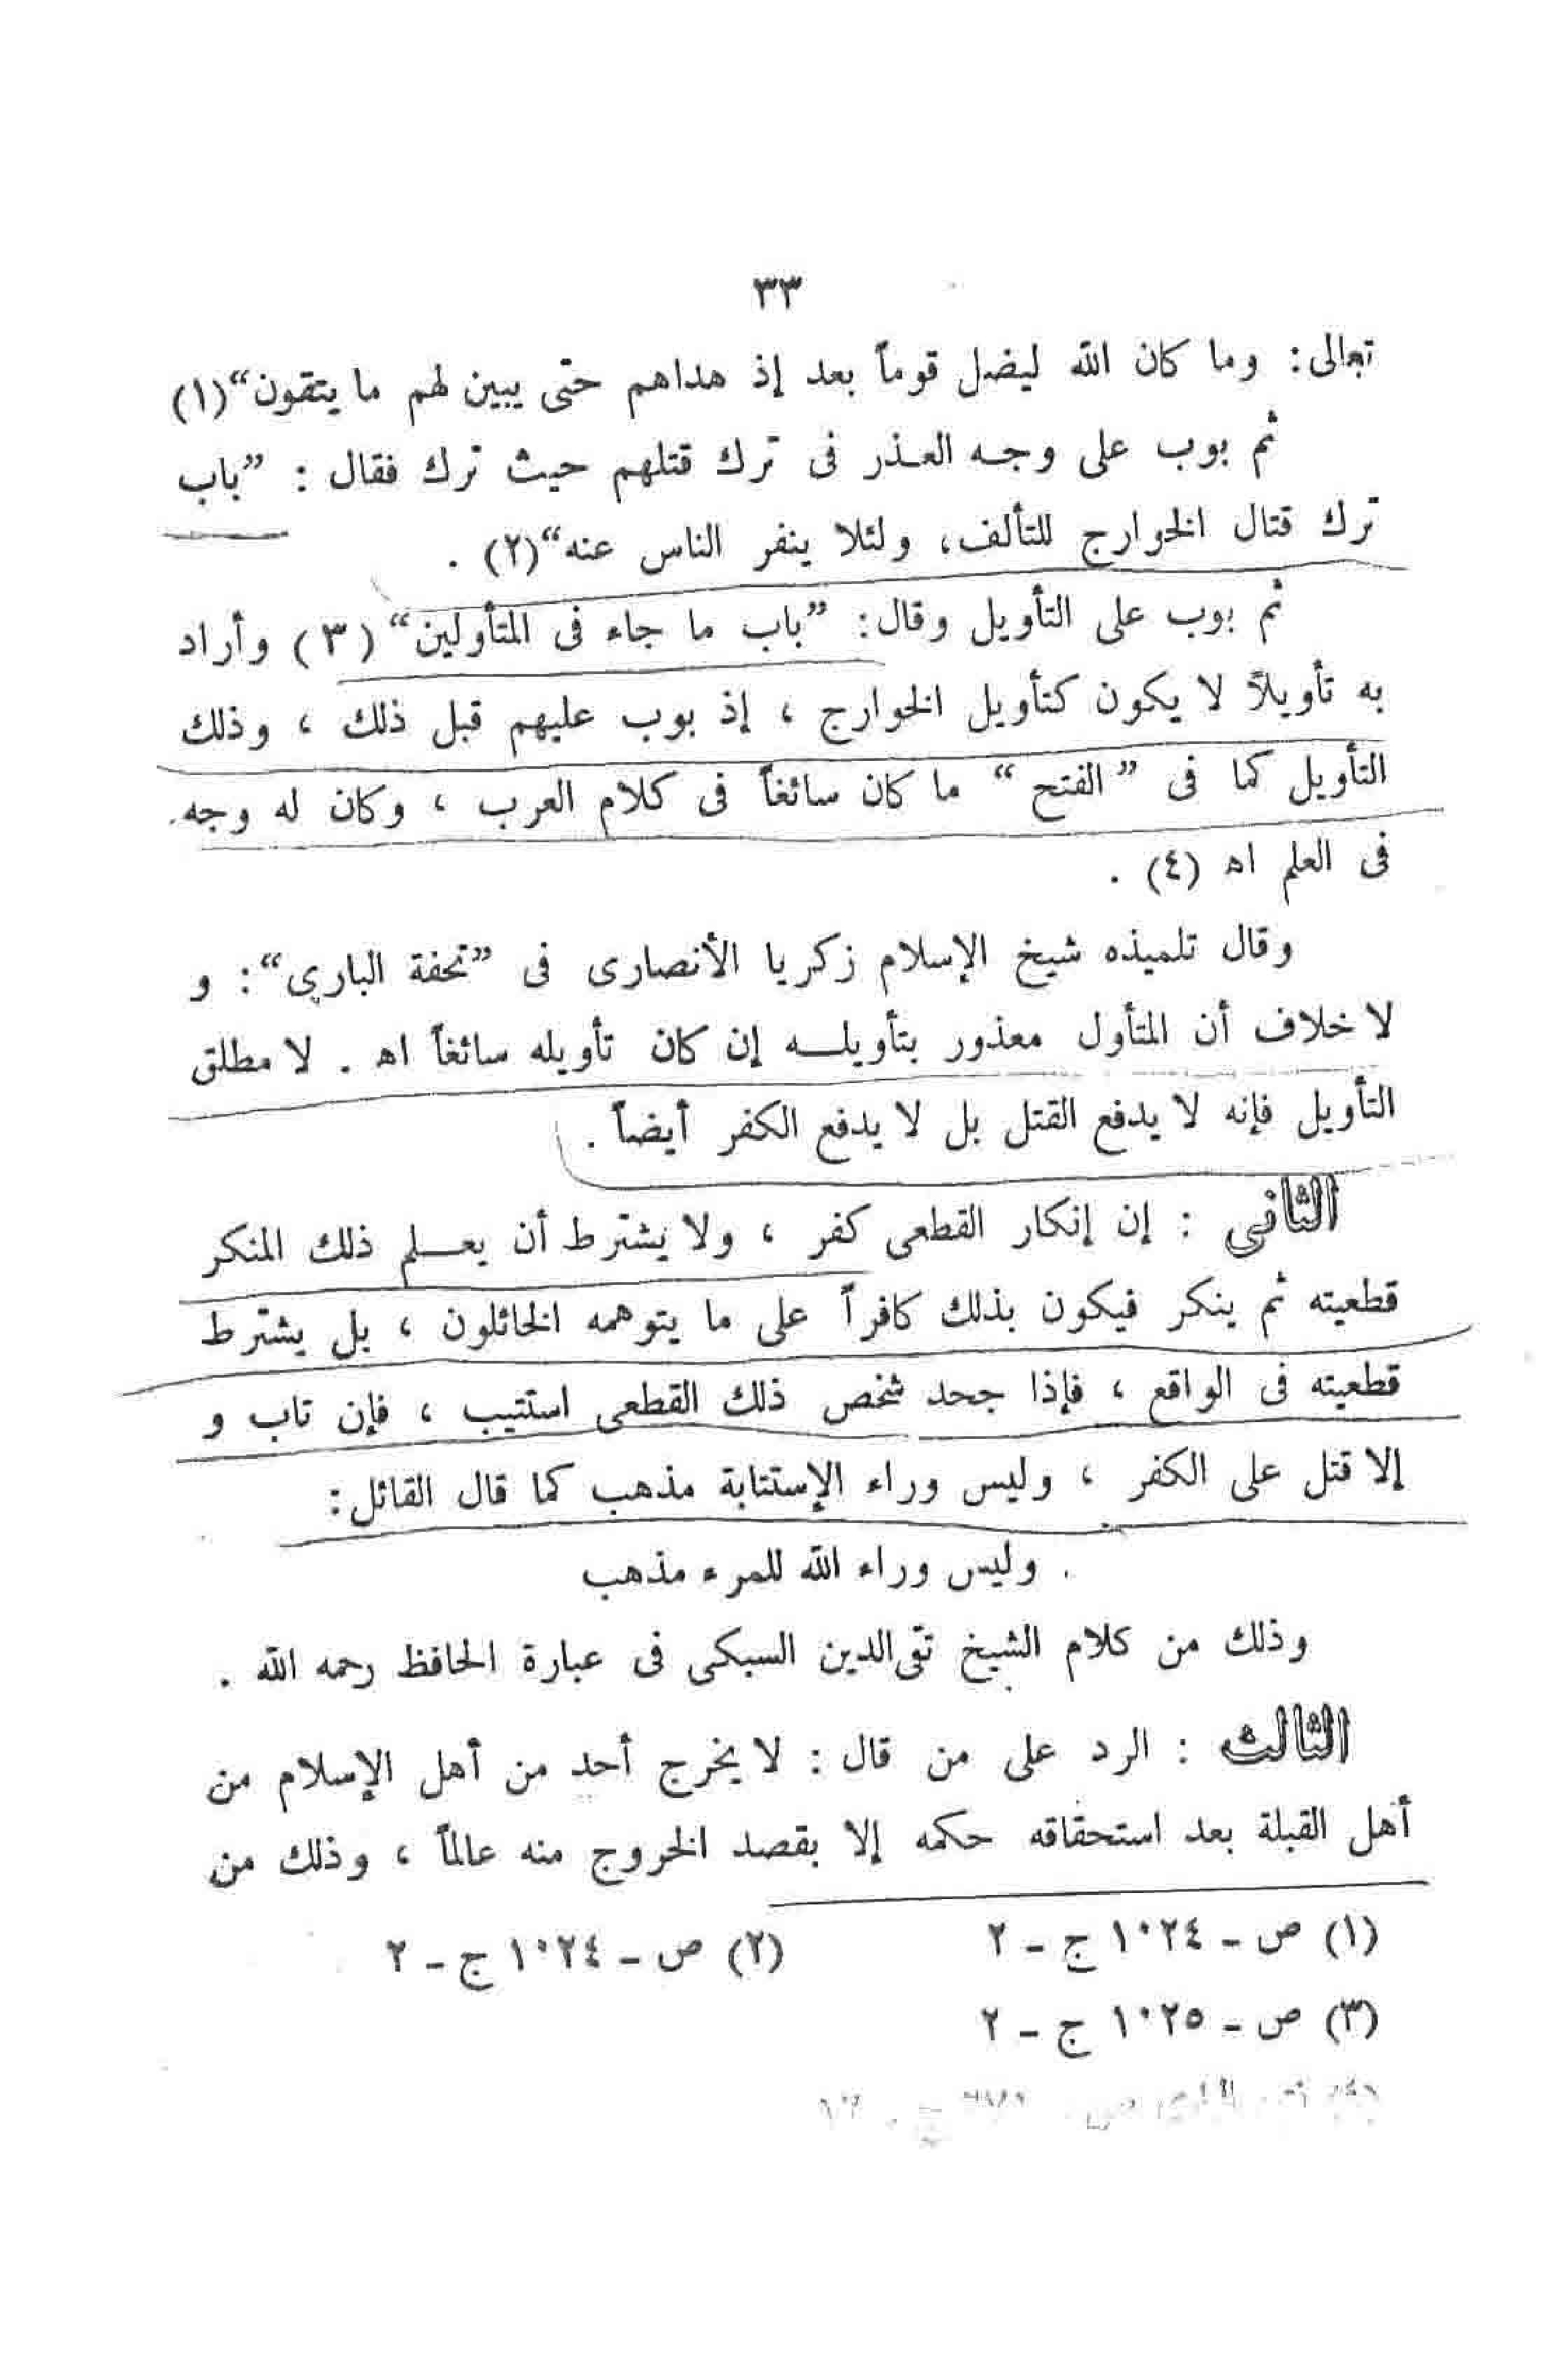 ٣٣
تعالى: وما كان الله ليضل قوماً بعد إذ هداهم حتى يبين لهم ما يتقون“(١)
ثم بوب على وجـه العـذر فى ترك قتلهم حيث ترك فقال : ”باب
ترك قتال الخوارج للتألف، ولئلا ينفر الناس عنه“(٢) .
ثم بوب على التأويل وقال: ”باب ما جاء فى المتأولين“ (٣) وأراد
به تأويلاً لا يكون كتأويل الخوارج ، إذ بوب عليهم قبل ذلك ، وذلك
التأويل كما فى ”الفتح“ ما كان سائغاً فى كلام العرب ، وكان له وجه
فى العلم اه (٤) .
وقال تلميذه شيخ الإسلام زكريا الأنصارى فى ”تحفة البارى“: و
لا خلاف أن المتأول معذور بتأويلـــه إن كان تأويله سائغاً اه . لا مطلق
التأويل فإنه لا يدفع القتل بل لا يدفع الكفر أيضاً .
الثانى : إن إنكار القطعى كفر ، ولا يشترط أن يعـــلم ذلك المنكر
قطعيته ثم ينكر فيكون بذلك كافراً على ما يتوهمه الخائلون ، بل يشترط
قطعيته فى الواقع ، فإذا جحد شخص ذلك القطعى استتيب ، فإن تاب و
إلا قتل على الكفر ، وليس وراء الإستتابة مذهب كما قال القائل:
وليس وراء الله للمرء مذهب
وذلك من كلام الشيخ تقى‌الدين السبكى فى عبارة الحافظ رحمه الله .
الثالث : الرد على من قال : لا يخرج أحد من أهل الإسلام من
أهل القبلة بعد استحقاقه حكمه إلا بقصد الخروج منه عالماً ، وذلك من
(١) ص ـ ١٠٢٤ ج ـ ٢ (٢) ص ـ ١٠٢٤ ج ـ ٢
(٣) ص ـ ١٠٢٥ ج ـ ٢